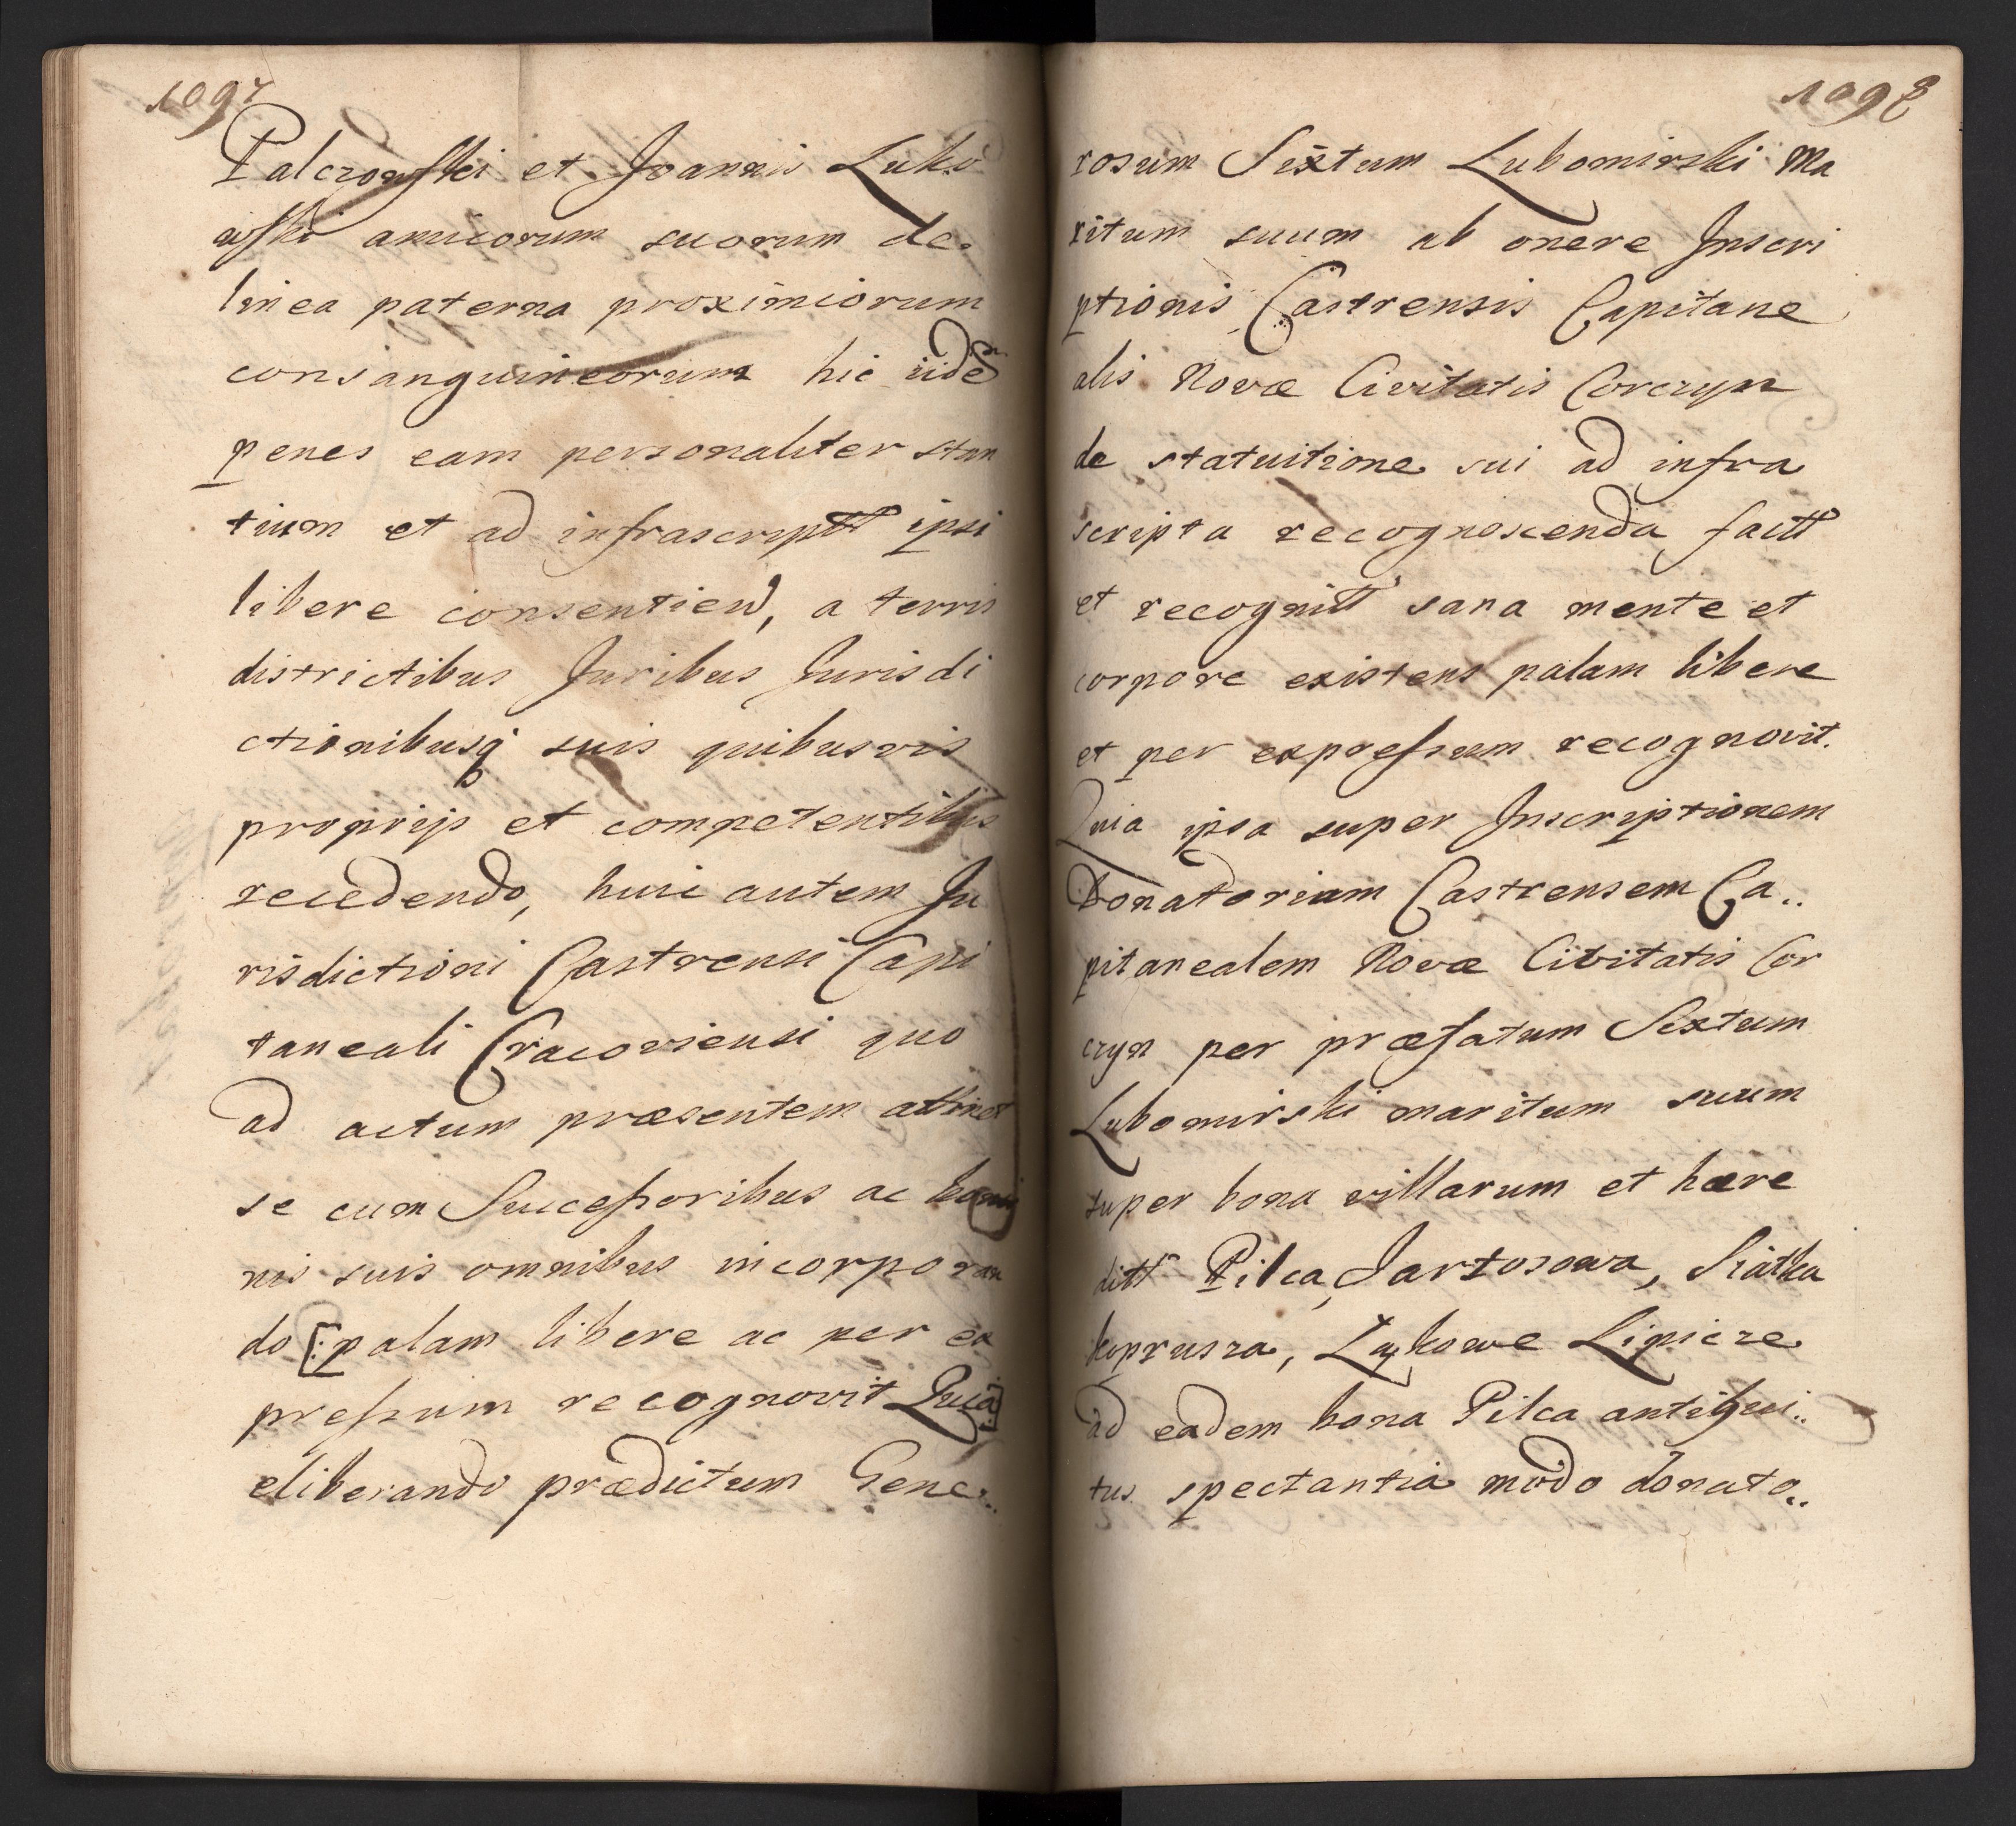 1097
Palczowski et Joannis Luko
wski amicorum suorum de
linea paterna proximiorum
consanguineorum hic iidẽ
penes eam personaliter stan
tium et ad infrascriptt ipsi
libere consentien, a terris
districtibus Juribus Jurisdi
ctionibusq suis quibusvis
proprijs et competentibus
recedendo, huic autem Ju
risdictioni Castrensi Capi
taneali Cracoviensi quo
ad actum præsentem attinet
se cum Successoribus ac
nis suis omnibus incorporan
do [: palam libere ac per ex
pressum recognovit Quia :]
eliberando prædictum Gene..
1098
rosum Sixtum Lubomirski Ma
ritum suum ab onere Inscri
ptionis Castrensis Capitane
alis Novæ Civitatis Corczyn
de statuitione sui ad infra
scripta recognoscenda factt
et recognitt sana mente et
corpore existens palam libere
et per expressum recognovit.
Quia ipsa super Inscriptionem
Donatoriam Castrensem Ca..
pitanealem Novæ Civitatis Cor
czyn per præfatum Sextum
Lubomirski maritum suum
super bona villarum et hære
ditt Pilca, Jartosowa, Siatka
koprusza, Zykowe Lipicze
ad eadem bona Pilca antiqui..
tus spectantia modo donato..